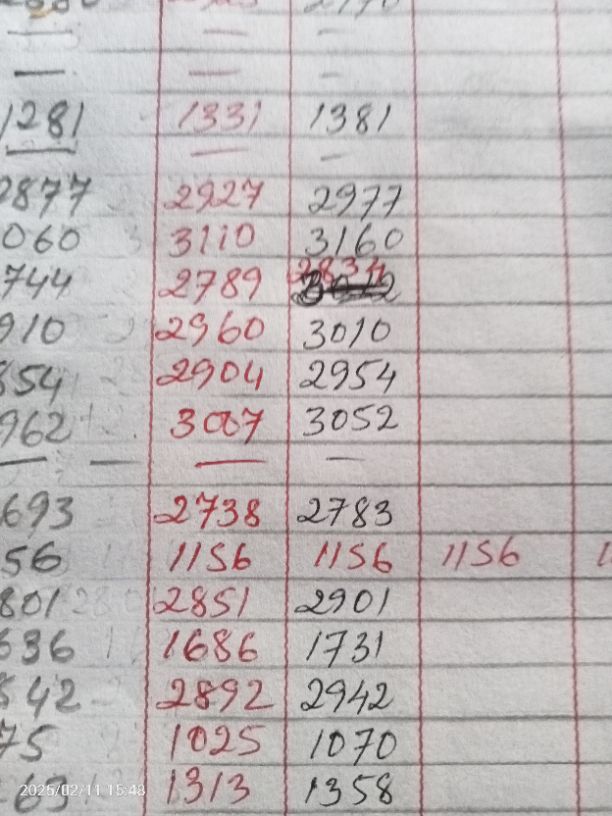 1281 1331 1381
2877 2927 2977
060 3110 3160
744 2789 2834
910 2960 3010
854 2904 2954
962 3007 3052
693 2738 2783
56 1156 1156 1156
801 2851 2901
636 1686 1731
842 2892 2942
75 1025 1070
263 1313 1358
2025/02/11 15:48